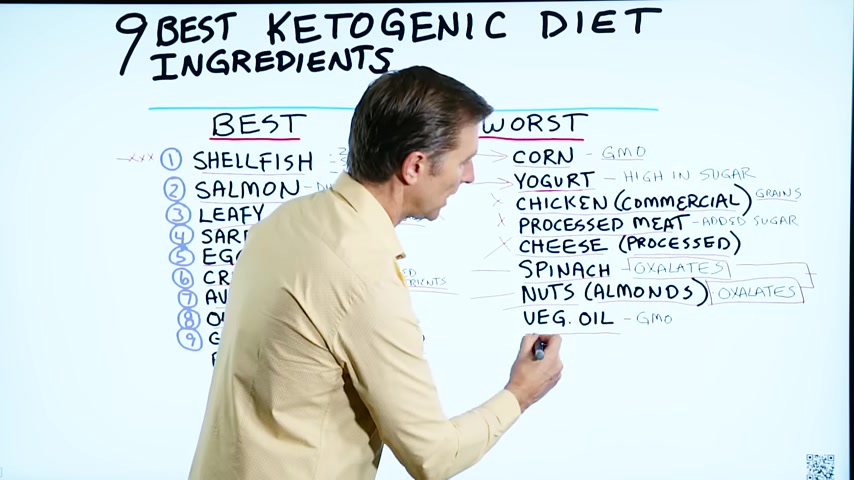 9 BEST KETOGENIC DIET
INGREDIENTS
BEST
xxx 1 SHELLFISH
2 SALMON
3 LEAFY
4
5
6
7
8
9
WORST
CORN - GMO
YOGURT - HIGH IN SUGAR
x CHICKEN (COMMERCIAL) GRAINS
x PROCESSED MEAT - ADDED SUGAR
x CHEESE (PROCESSED)
SPINACH - OXALATES
NUTS (ALMONDS) OXALATES
VEG. OIL - GMO